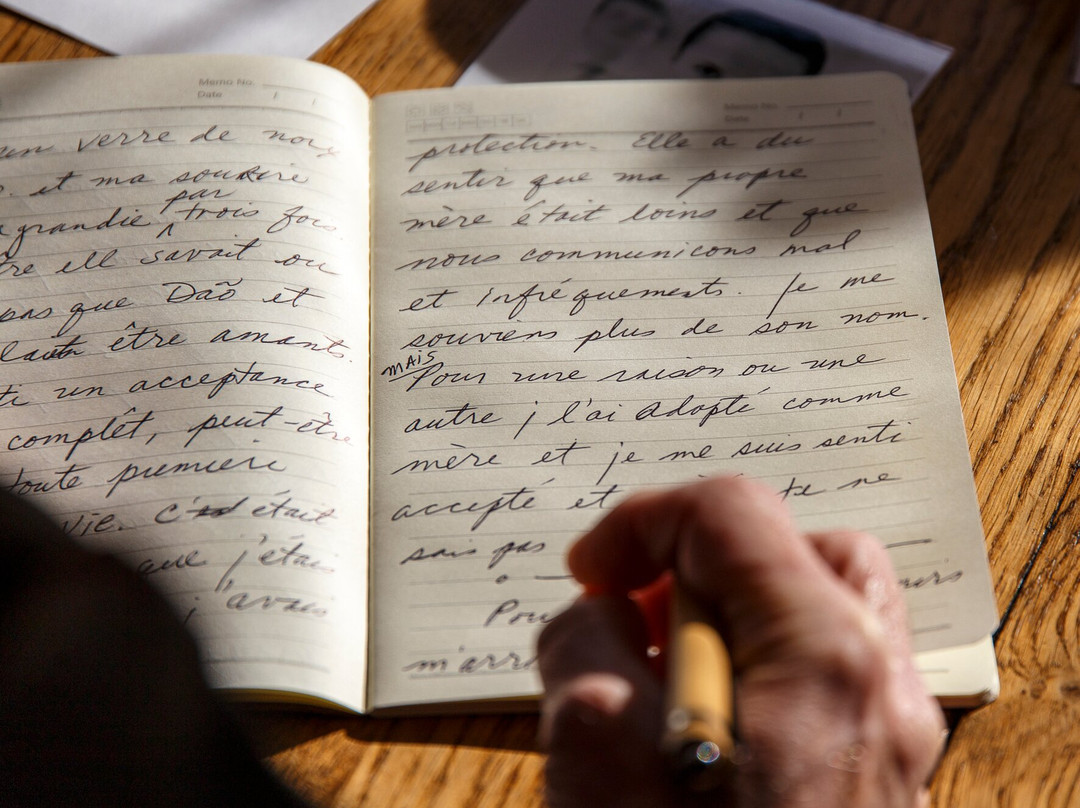 Memo No.
Date / /
un verre de noix
et ma soudire
par
agrandie trois fois
ell savait ou
pas que Dão et
être amants.
un acceptance
complêt, peut-être
toute premierè
vie. c' était
que j'étais
j'avais
Memo No.
Date / /
protection. Elle a du
sentir que ma propre
mère était loins et que
nous communicons mal
et infréquements. Je me
souviens plus de son nom.
MAIS
Pour une raison ou une
autre j l'ai adopté comme
mère et je me suis senti
accepté et ne
sais pas
Pou
m'arr